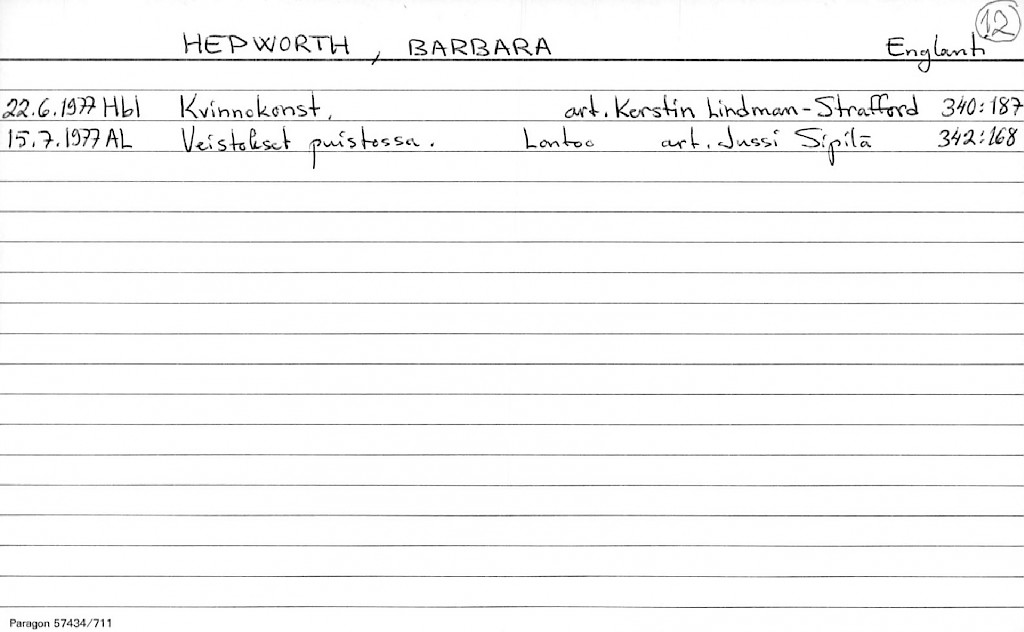 12
HEPWORTH, BARBARA Englanti
22.6.1977 Hbl Kvinnokonst, art. Kerstin Lindman-Strafford 340:187
15.7.1977 AL Veistokset puistossa. Lontoo art. Jussi Sipilä 342:168
Paragon 57434/711